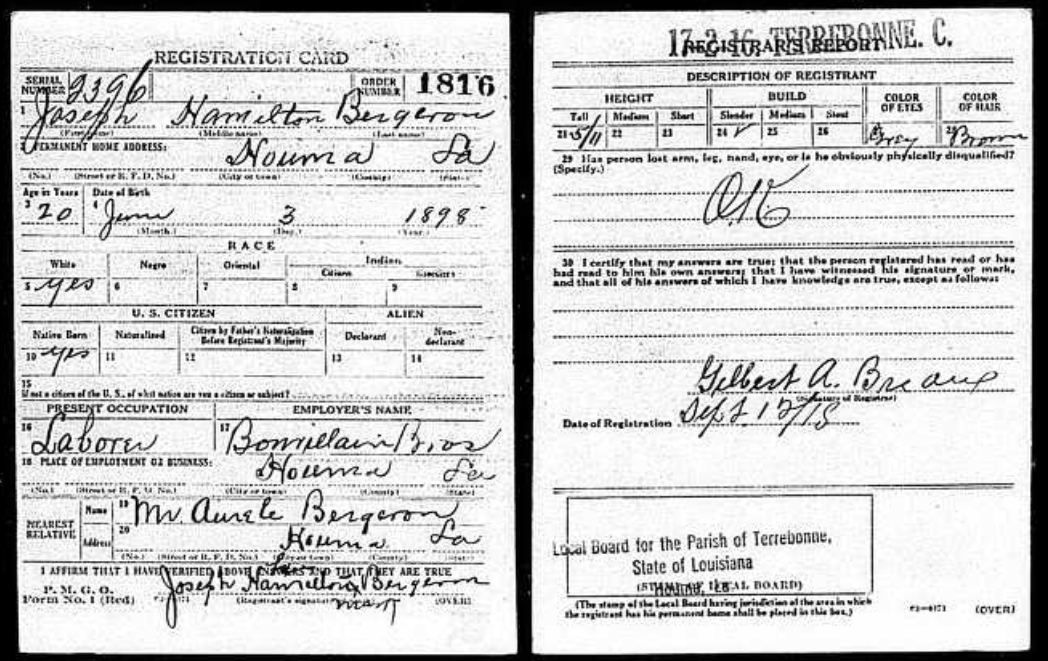 REGISTRATION CARD
SERIAL NUMBER 2396 ORDER NUMBER 1816
1 Joseph Hamilton Bergeron
(First name) (Middle name) (Last name)
PERMANENT HOME ADDRESS:
Houma La
(No.) (Street or R. F. D. No.) (City or town) (County) (State)
Age in Years Date of Birth
3 20 4 June 3 1898
(Month.) (Day.) (Year.)
RACE
White Negro Oriental Indian
Citizen
5 yes 6 7 8 9
U. S. CITIZEN ALIEN
Native Born Naturalized Citizen by Father's Naturalization Before Registrant's Majority Declarant Non-declarant
10 yes 11 12 13 14
15
If not a citizen of the U. S., of what nation are you a citizen or subject?
PRESENT OCCUPATION EMPLOYER'S NAME
16 Laborer 17 Bonvillain Bros
18 PLACE OF EMPLOYMENT OR BUSINESS:
Houma La
(No.) (Street or R. F. D. No.) (City or town) (County) (State)
NEAREST RELATIVE Name 19 Mr. Aurele Bergeron
Address 20 Houma La
(No.) (Street or R. F. D. No.) (City or town) (County) (State)
I AFFIRM THAT I HAVE VERIFIED ABOVE ANSWERS AND THAT THEY ARE TRUE
P. M. G. O.
Form No. 1 (Red) Joseph Hamilton Bergeron
(Registrant's signature) (OVER)
mark
17-2-16 TERREBONNE. C.
REGISTRAR'S REPORT
DESCRIPTION OF REGISTRANT
HEIGHT BUILD COLOR OF EYES COLOR OF HAIR
Tall Medium Short Slender Medium Stout
21 5/11 22 23 24 ✓ 25 26 Grey Brown
29 Has person lost arm, leg, hand, eye, or is he obviously physically disqualified?
(Specify.)
OK
30 I certify that my answers are true; that the person registered has read or has
had read to him his own answers; that I have witnessed his signature or mark,
and that all of his answers of which I have knowledge are true, except as follows:
Gilbert A. Breaux
(Signature of Registrar)
Date of Registration Sept. 12/18
Local Board for the Parish of Terrebonne,
State of Louisiana
(STAMP OF LOCAL BOARD)
Houma, La
(The stamp of the Local Board having jurisdiction of the area in which
the registrant has his permanent home shall be placed in this box.)
(OVER)